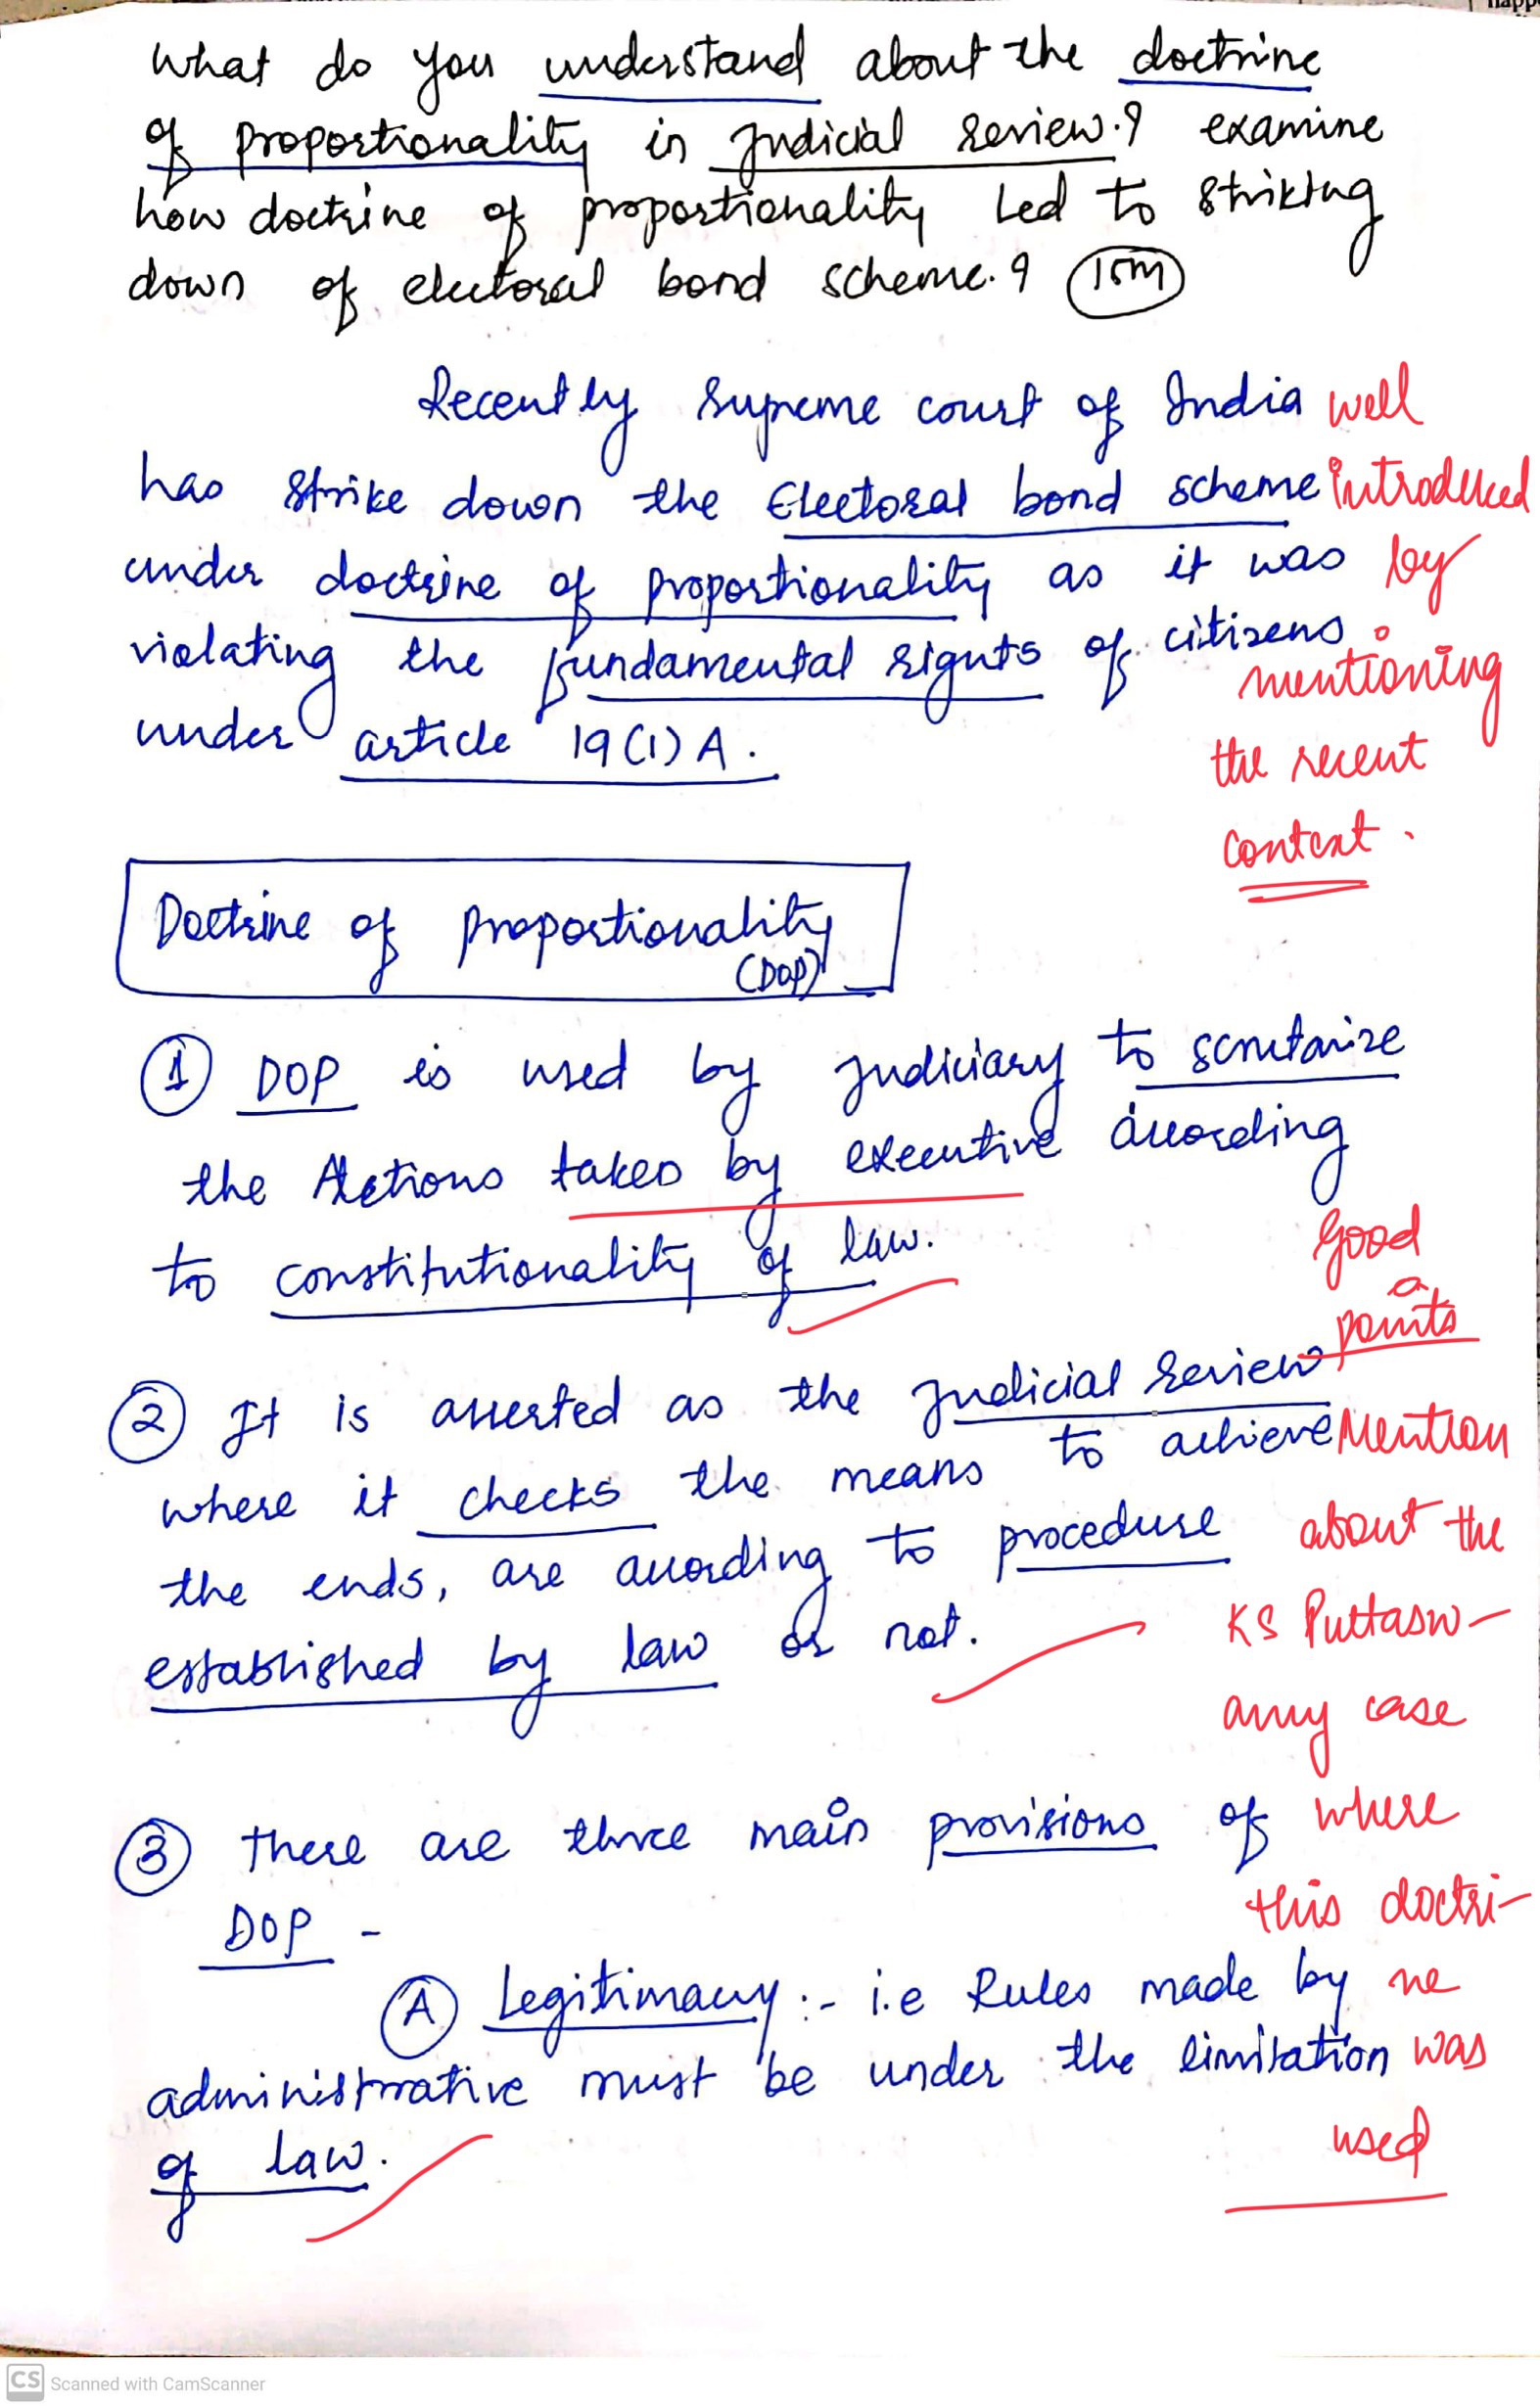 What do you understand about the doctrine
of proportionality in Judicial Review.? examine
how doctrine of proportionality Led to striking
down of electoral bond scheme.? 15m
Recently Supreme court of India
has strike down the Electoral bond scheme
under doctrine of proportionality as it was
violating the fundamental rights of citizens
under article 19(1)A.
well
introduced
by
mentioning
the recent
context.
Doctrine of proportionality
(DOP)
1 DOP is used by judiciary to scrutanize
the Actions taken by executive according
to constitutionality of law.
Good
points
2 It is asserted as the Judicial Review
where it checks the means to achieve
the ends, are according to procedure
established by law or not.
3 There are three main provisions of
DOP -
A Legitimacy:- i.e Rules made by
administrative must be under the limitation
of law.
Mention
about the
KS Puttasw-
amy case
where
this doctri-
ne
was
used
CS Scanned with CamScanner